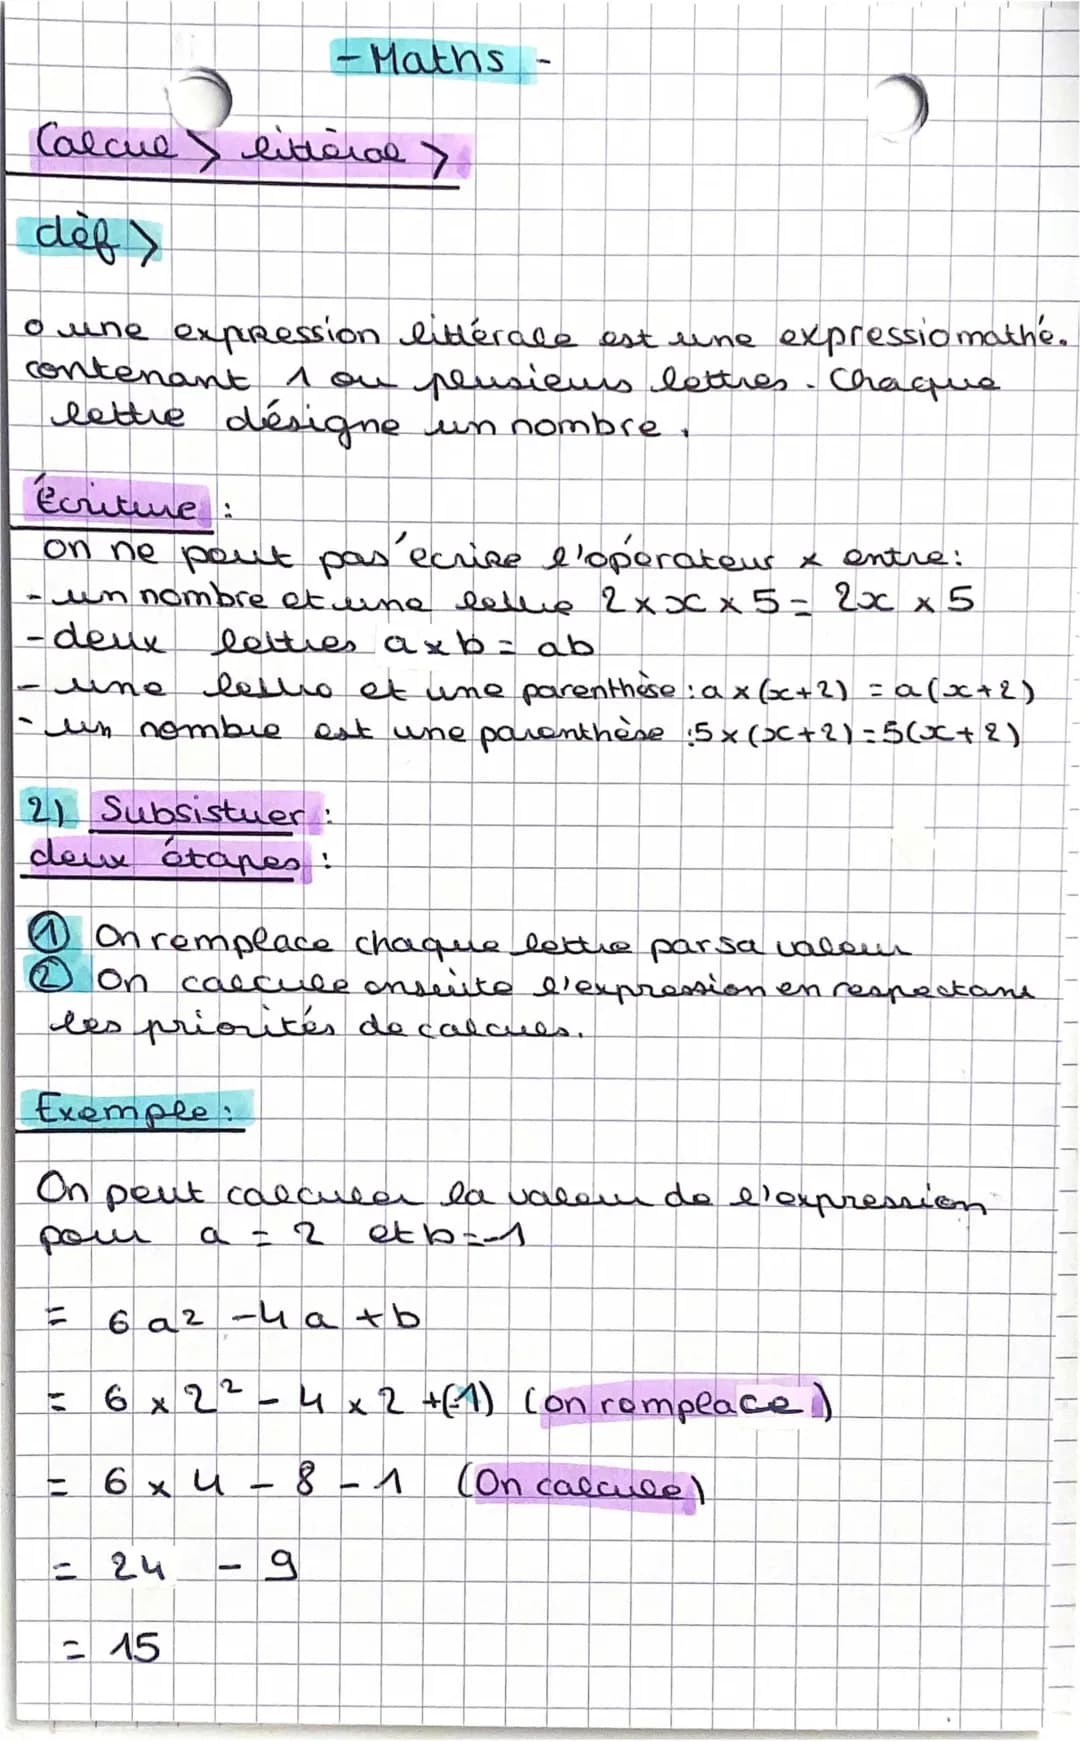 - Maths -
Calcul > littèral >
dèf >
o une expression littérale est une expressio mathé.
contenant 1 ou plusieurs lettres. Chaque
lettre désigne un nombre.
Écriture :
on ne peut pas écrire l'opérateur x entre:
- un nombre et une lettre 2 x x x 5 = 2x x 5
- deux lettres a x b = ab
- une lettre et une parenthèse : a x (x+2) = a(x+2)
- un nombre est une parenthèse : 5 x (x+2) = 5(x+2)
2) Subsistuer :
deux étapes :
① On remplace chaque lettre par sa valeur
② On calcule ensuite l'expression en respectant
les priorités de calculs.
Exemple :
On peut calculer la valeur de l'expression
pour a = 2 et b = -1
= 6 a2 - 4 a + b
= 6 x 2² - 4 x 2 + (-1) (on remplace)
= 6 x 4 - 8 - 1 (On calcule)
= 24 - 9
= 15